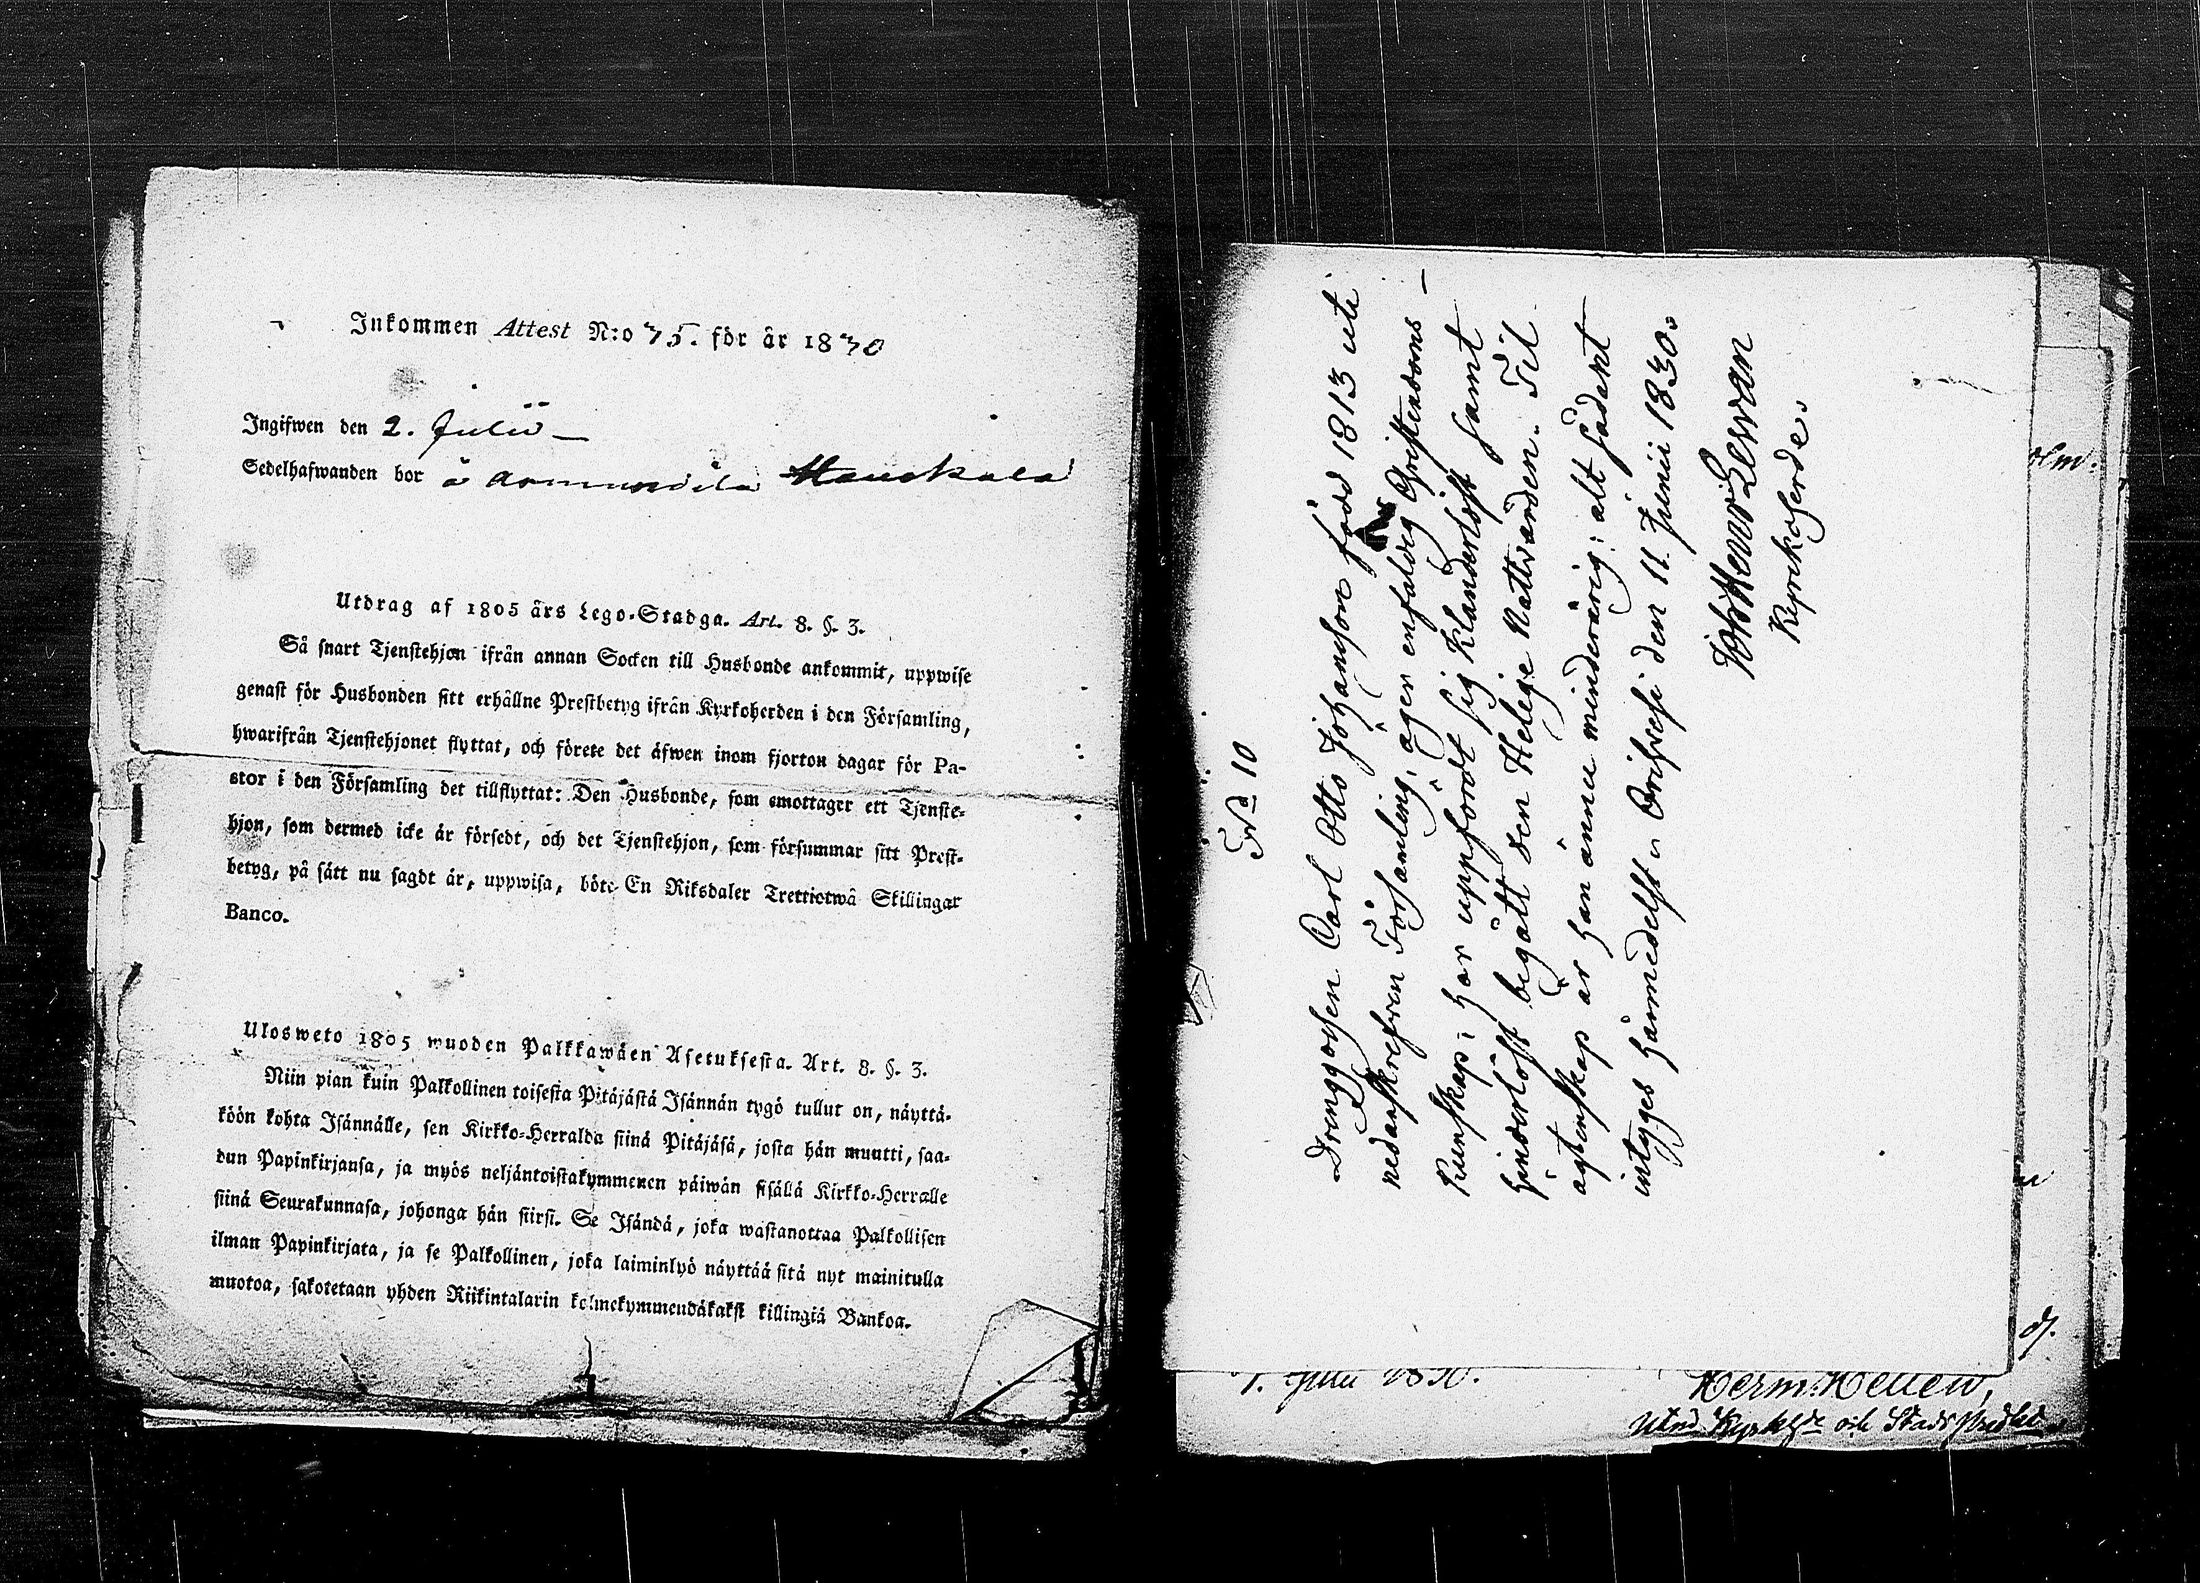 Inkommen Attest N:o 75. för år 1830
Ingifwen den 2. Julii –
Sedelhafwanden bor å
Utdrag af 1805 års Lego-Stadga. Art. 8. §. 3.
Så snart Tjenstehjon ifrån annan Socken till Husbonde ankommit, uppwise
genast för Husbonden sitt erhållne Prestbetyg ifrån Kyrkoherden i den Församling,
hwarifrån Tjenstehjonet flyttat, och förete det äfwen inom fjorton dagar för Pa-
stor i den Församling det tillflyttat: Den Husbonde, som emottager ett Tjenste-
hjon, som dermed icke är försedt, och det Tjenstehjon, som försummar sitt Prest-
betyg, på sätt nu sagdt är, uppwisa, böte En Riksdaler Trettiotwå Skillingar
Banco.
Ulosweto 1805 wuoden Palkkawäen Asetuksesta. Art. 8. §. 3.
Niin pian kuin Palkollinen toisesta Pitäjästä Isännän tygö tullut on, näyttä-
köön kohta Isännälle, sen Kirkko-Herralda siinä Pitäjäsä, josta hän muutti, saa-
dun Papinkirjansa, ja myös neljäntoistakymmenen päiwän sisällä Kirkko-Herralle
siinä Seurakunnasa, johonga hän siirsi. Se Isändä, joka wastanottaa Palkollisen
ilman Papinkirjata, ja se Palkollinen, joka laiminlyö näyttää sitä nyt mainitulla
muotoa, sakotetaan yhden Riikintalarin kolmekymmendäkaksi killingiä Bankoa.
No 10
Drenggossen Carl Otto Johansson född 1813 uti
nedanskrefven Församling, äger enfaldig Christendoms –
kunskap; har uppfördt sig klanderlöst samt
hinderlöst begått den Helige Nattvarden. Till
ägtenskap är han ännu minderårig; alt sådant
intyges härmedelst. den 11. Junii 1830.
Joh Henr
Kyrkoherde.
olm.
d.
1. Julii 1830.
Herm: Hellen,
Kyrkhde och